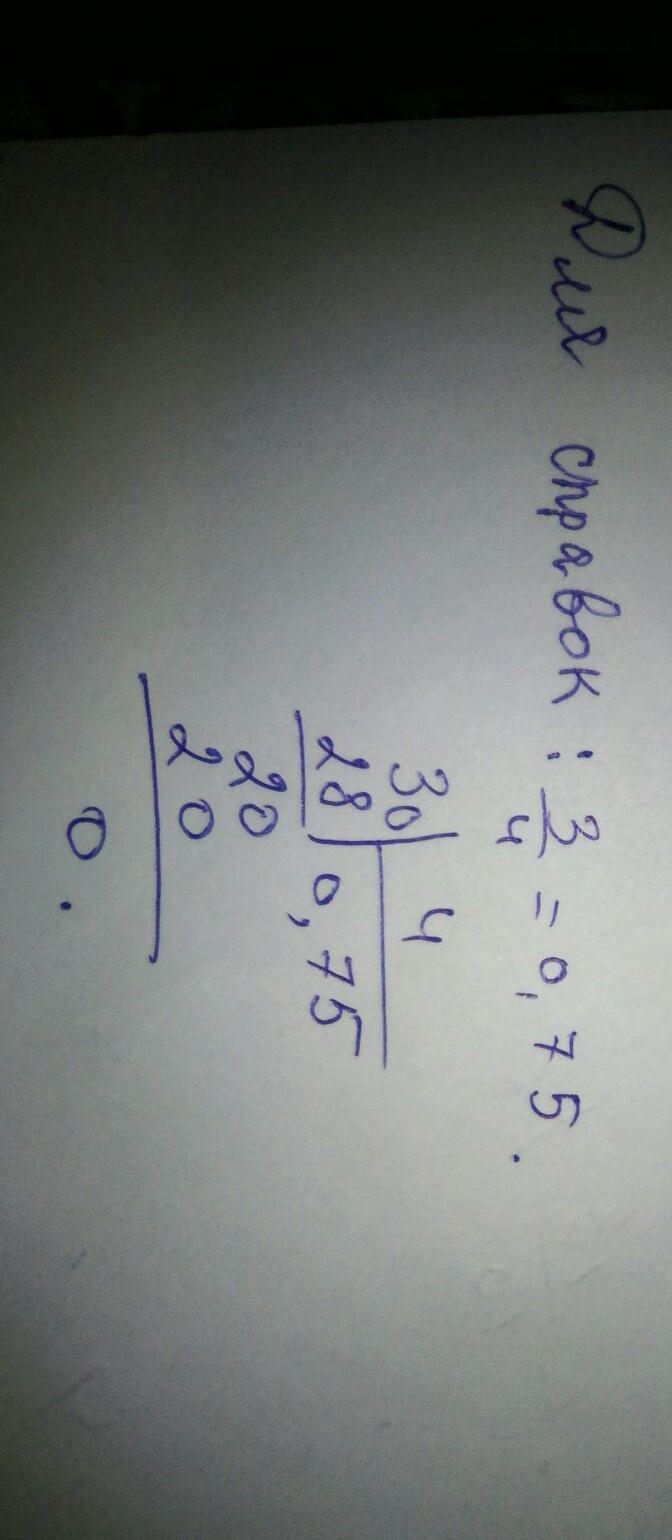 Для справок: 3/4 = 0,75.
30 | 4
28 | 0,75
20
20
0.